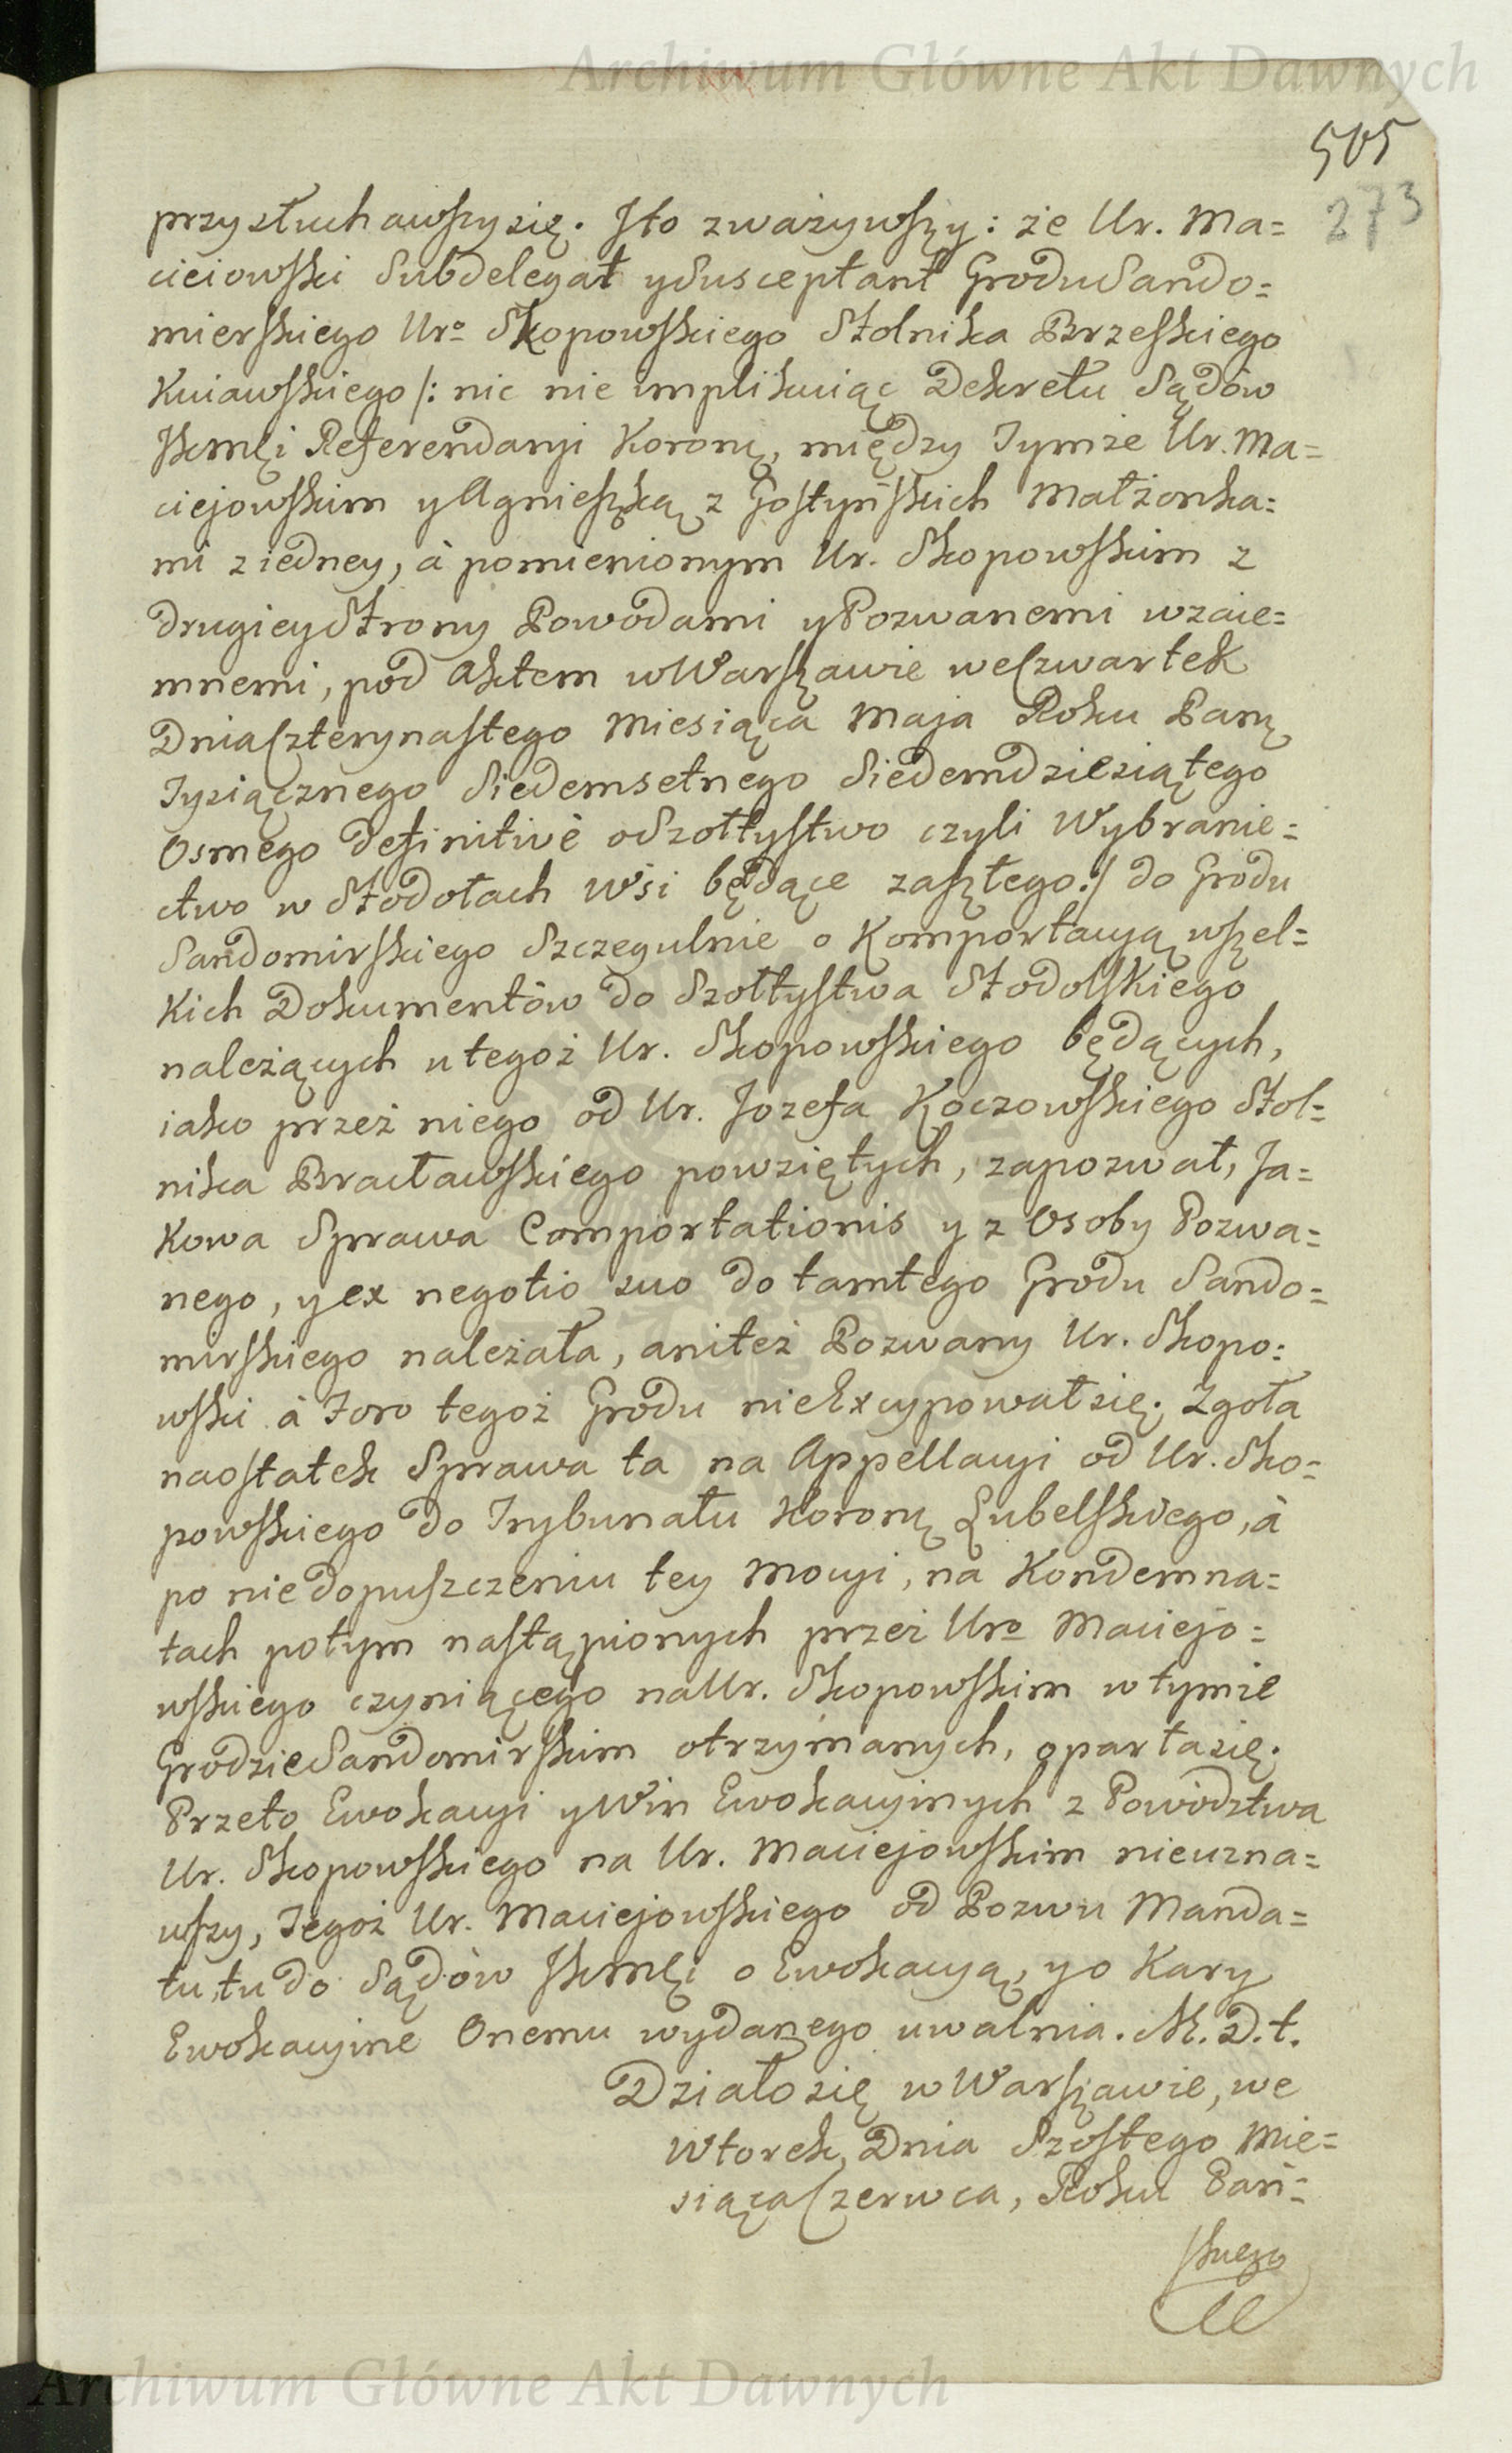 Archiwum Główne Akt Dawnych
505
273
przysłuchawszysię. Ito zważywszy: że Ur. Ma=
cieiowski Subdelegat ySusceptant GroduSando=
mierskiego Uro Skopowskiego Stolnika Brzeskiego
Kuiawskiego /: nic nie implikuiąc Dekretu Sądów
JKmłj Referendaryi Koronų, między Tymże Ur. Ma=
ciejowskim yAgnieszką z Gostyńskich Małżonka=
mi z iedney, à pomienionym Ur. Skopowskim z
drugieyStrony Powodami yPozwanemi wzaie=
mnemi, pod Aktem wWarszawie weCzwartek
DniaCzterynastego Miesiąca Maja Roku Panų
Tysiącznego Siedemsetnego Siedemdziesiątego
Osmego definitivè oSzołtystwo czyli Wybranie=
ctwo w Stodołach Wsi będące zaszłego:/ do Grodu
Sandomirskiego Szczegulnie o Komportacyą wszel=
kich Dokumentów do Szołtystwa Stodolskiego
należących u tegoż Ur. Skopowskiego będących,
iako przez niego od Ur. Jozefa Koczowskiego Stol=
nika Bracławskiego powziętych, zapozwał, Ja=
kowa Sprawa Comportationis y z Osoby Pozwa=
nego, y ex negotio suo do tamtego Grodu Sando=
mirskiego należała, aniteż Pozwany Ur. Skopo=
wski à Foro tegoż Grodu nieExcypowałsię. Zgoła
naostatek Sprawa ta na Appellacyi od Ur. Sko=
powskiego do Trybunału Koronų Lubelskiego, à
po niedopuszczeniu tey Mocyi, na Kondemna=
tach potym nastąpionych przez Uro Maciejo=
wskiego czyniącego naUr. Skopowskim w tymże
GrodzieSandomirskim otrzymanych, opartasię.
Przeto Ewokacyi yWin Ewokacyinych z Powodztwa
Ur. Skopowskiego na Ur. Maciejowskim nieuzna=
wszy, Tegoż Ur. Maciejowskiego od Pozwu Manda=
tu, tu do Sądów JKmłj o Ewokacyą, y o Kary
Ewokacyine Onemu wydanego uwalnia. M. D. t.
Działosię wWarszawie, we
Wtorek, Dnia Szostego Mie=
siącaCzerwca, Roku Pań=
skiego
Archiwum Główne Akt Dawnych